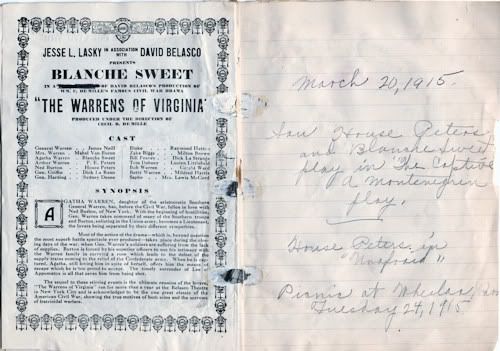 JESSE L. LASKY IN ASSOCIATION WITH DAVID BELASCO
PRESENTS
BLANCHE SWEET
IN A OF DAVID BELASCO'S PRODUCTION OF
WM. C. DE MILLE'S FAMOUS CIVIL WAR DRAMA
"THE WARRENS OF VIRGINIA"
PRODUCED UNDER THE DIRECTION OF
CECIL B. DE MILLE
CAST
General Warren - James Neill
Mrs. Warren - Mabel Van Buren
Agatha Warren - Blanche Sweet
Arthur Warren - P. E. Peters
Ned Burton - House Peters
Gen. Griffin - Dick La Reno
Gen. Harding - Sydney Deane
Blake - Raymond Hatton
Zeke Biggs - Milton Brown
Bill Peters - Dick La Strange
Tom Dabney - Lucien Littlefield
Bob Warren - Gerald Ward
Betty Warren - Mildred Harris
Mrs. Lewis McCord
SYNOPSIS
AGATHA WARREN, daughter of the aristocratic Southern
General Warren, has, before the Civil War, fallen in love with
Ned Burton, of New York. With the beginning of hostilities,
Gen. Warren takes command of many of the Southern troops
and Burton, enlisting in the Union army, becomes a Lieutenant,
the lovers being separated by their different sympathies.
Most of the action of the drama—which is, beyond question
the most superb battle spectacle ever produced—takes place during the clos-
ing days of the war, when Gen. Warren's soldiers are suffering from the lack
of supplies. Burton is forced by his superior officers to use his friendship for
the Warren family in carrying a ruse which leads to the defeat of the
supply trains coming to the relief of the Confederate army. When he is cap-
tured, Agatha, still loving him in spite of herself, offers him the means of
escape which he is too proud to accept. The timely surrender of Lee at
Appomattox is all that saves him from being shot.
The sequel to these stirring events is the ultimate reunion of the lovers.
"The Warrens of Virginia" ran for more than a year at the Belasco Theatre
in New York City and is acknowledged to be the one great classic of the
American Civil War, showing the true motives of both sides and the sorrows
of the
March 20, 1915.
Saw House Peters
and Blanche Sweet
play in The Captive
a Montenegrin
play.
House Peters in
Picnic at
Tuesday 24, 1915.